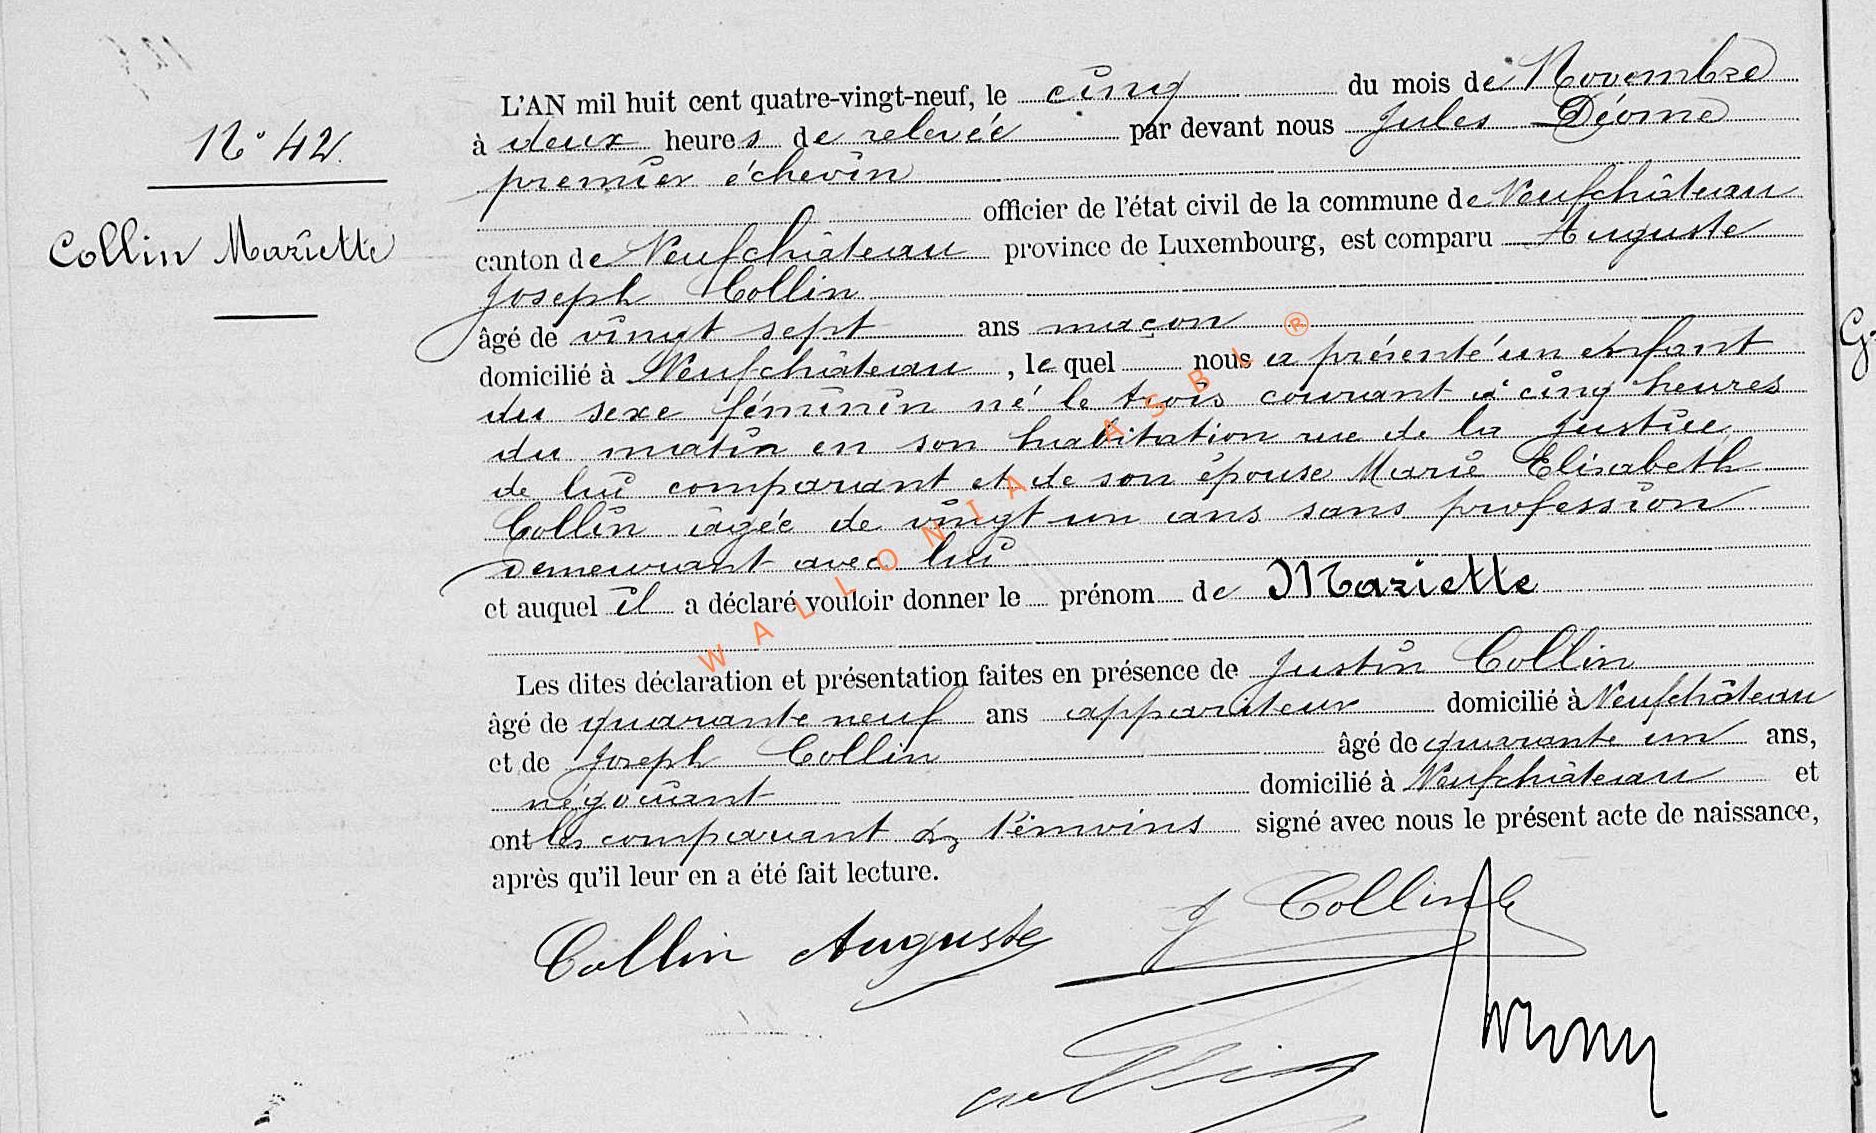 N° 42.
Collin Mariette
L'AN mil huit cent quatre-vingt-neuf, le cinq du mois de Novembre
à deux heures de relevée par devant nous Jules Déome
premier échevin
officier de l'état civil de la commune de Neufchâteau
canton de Neufchâteau province de Luxembourg, est comparu Auguste
Joseph Collin
âgé de vingt sept ans maçon
domicilié à Neufchâteau, lequel nous a présenté un enfant
du sexe féminin né le trois courant à cinq heures
du matin en son habitation rue de la Justice
de lui comparant et de son épouse Marie Elisabeth
Collin âgée de vingt un ans sans profession
demeurant avec lui
et auquel il a déclaré vouloir donner le prénom de Mariette
Les dites déclaration et présentation faites en présence de Justin Collin
âgé de quarante neuf ans appariteur domicilié à Neufchâteau
et de Joseph Collin âgé de quarante un ans,
négociant domicilié à Neufchâteau et
ont les comparant & témoins signé avec nous le présent acte de naissance,
après qu'il leur en a été fait lecture.
Collin Auguste J Collin
Collin
G.
WALLONIA ASBL ®